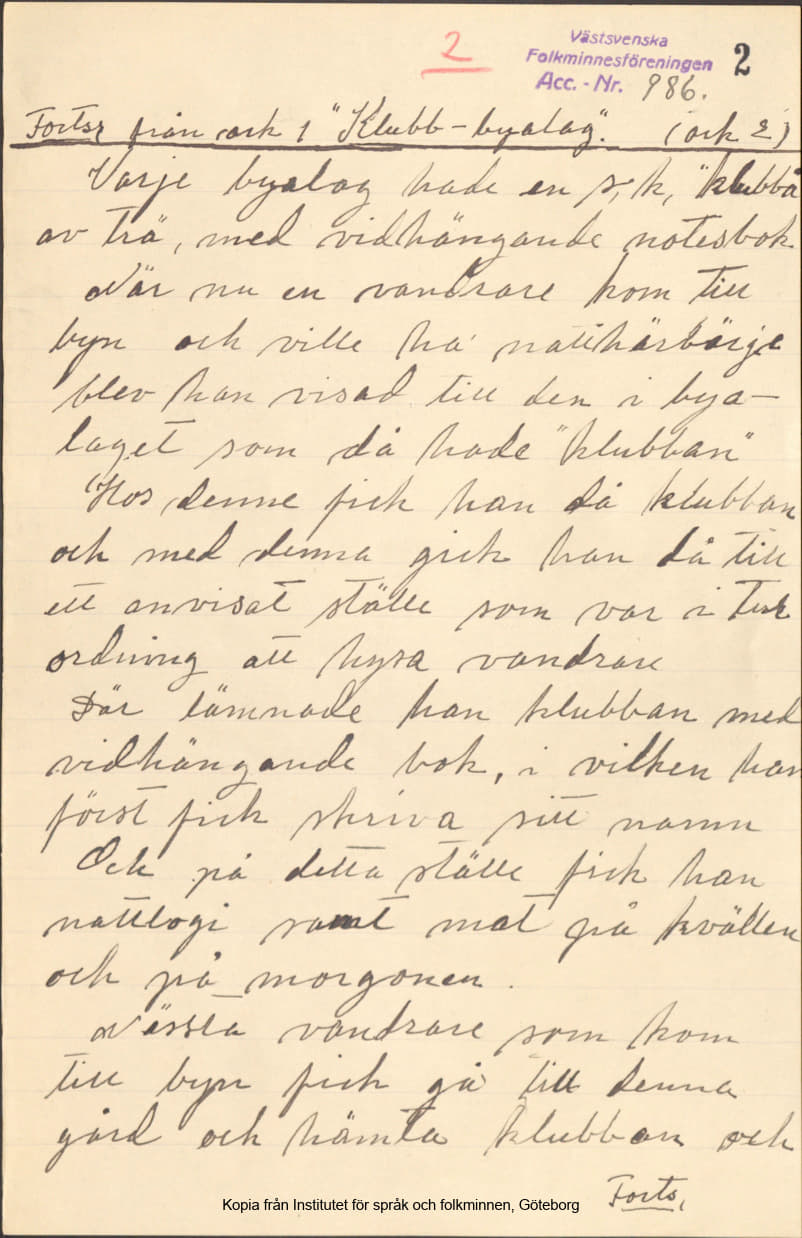 2
Västsvenska
Folkminnesföreningen
Acc. - Nr. 986.
2
Forts, från ark 1 "Klubb-byalag". (ark 2)
Varje byalag hade en s, k, "klubba
av trä, med vidhängande notesbok
När nu en vandrare kom till
byn och ville ha natthärbärje
blev han visad till den i bya-
laget som då hade "klubban"
Hos denne fick han då klubban
och med denna gick han då till
ett anvisat ställe som var i tur
ordning att hysa vandrare
Där lämnade han klubban med
vidhängande bok, i vilken han
först fick skriva sitt namn
Och på detta ställe fick han
nattlogi samt mat på kvällen
och på morgonen.
Nässta vandrare som kom
till byn fick gå till denna
gård och hämta klubban och
Forts,
Kopia från Institutet för språk och folkminnen, Göteborg